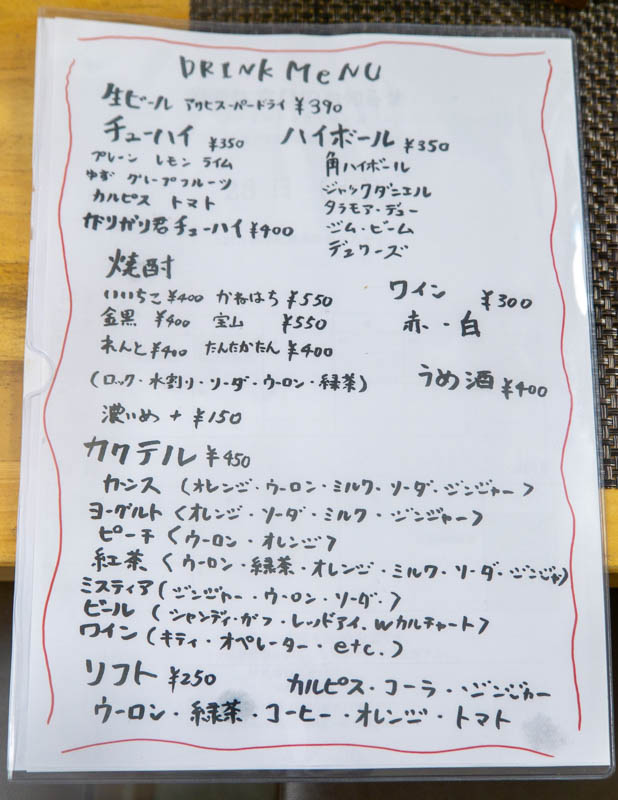 DRINK MeNU
生ビール アサヒスーパードライ ¥390
チューハイ ¥350
プレーン レモン ライム
ゆず グレープフルーツ
カルピス トマト
ガリガリ君チューハイ ¥400
ハイボール ¥350
角ハイボール
ジャックダニエル
タラモア・デュー
ジム・ビーム
デュワーズ
焼酎
いいちこ ¥400 かねはち ¥550
金黒 ¥400 宝山 ¥550
れんと ¥400 たんたかたん ¥400
(ロック・水割り・ソーダ・ウーロン・緑茶)
濃いめ + ¥150
ワイン ¥300
赤・白
うめ酒 ¥400
カクテル ¥450
カシス (オレンジ・ウーロン・ミルク・ソーダ・ジンジャー)
ヨーグルト (オレンジ・ソーダ・ミルク・ジンジャー)
ピーチ (ウーロン・オレンジ)
紅茶 (ウーロン・緑茶・オレンジ・ミルク・ソーダ・ジンジャ)
ミスティア (ジンジャー・ウーロン・ソーダ・)
ビール (シャンディ・ガフ・レッドアイ.Wカルチャート)
ワイン (キティ・オペレーター・etc.)
ソフト ¥250 カルピス・コーラ・ジンジャー
ウーロン・緑茶・コーヒー・オレンジ・トマト